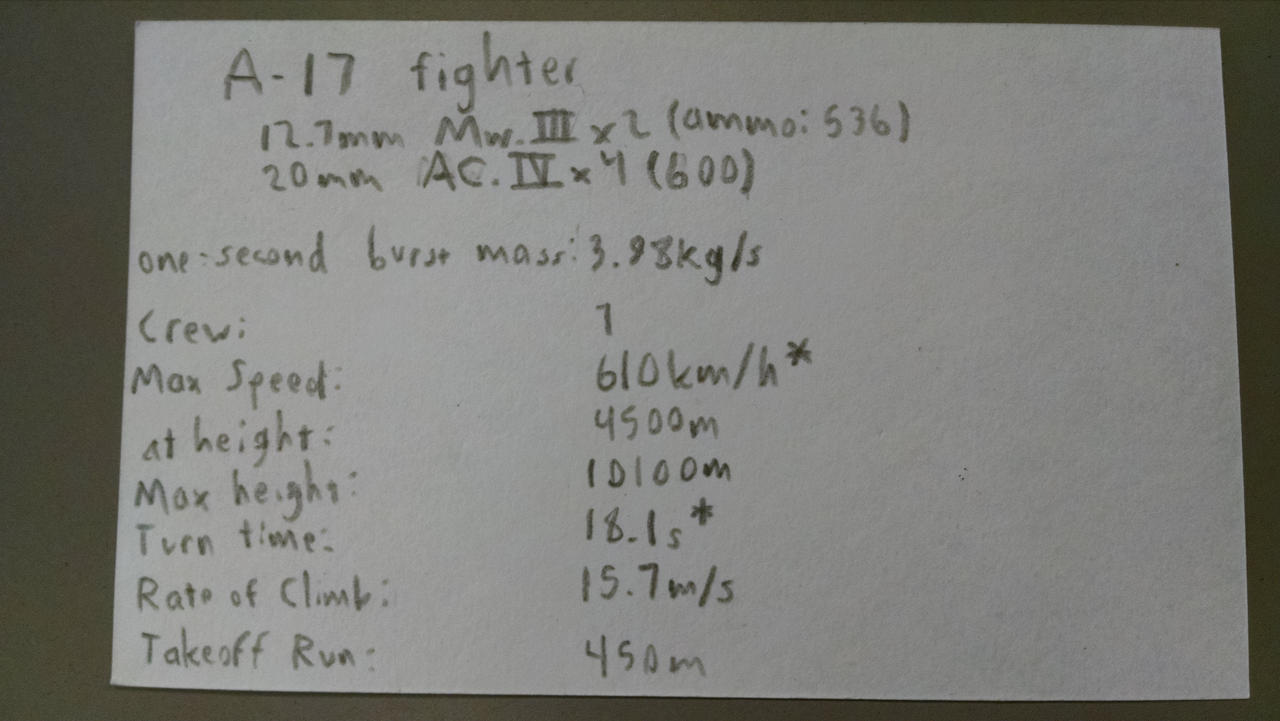 A-17 fighter
12.7mm Mw. III x2 (ammo: 536)
20mm AC. IV x4 (600)
one-second burst mass: 3.98kg/s
Crew: 1
Max Speed: 610km/h*
at height: 4500m
Max height: 10100m
Turn time: 18.1s*
Rate of Climb: 15.7m/s
Takeoff Run: 450m